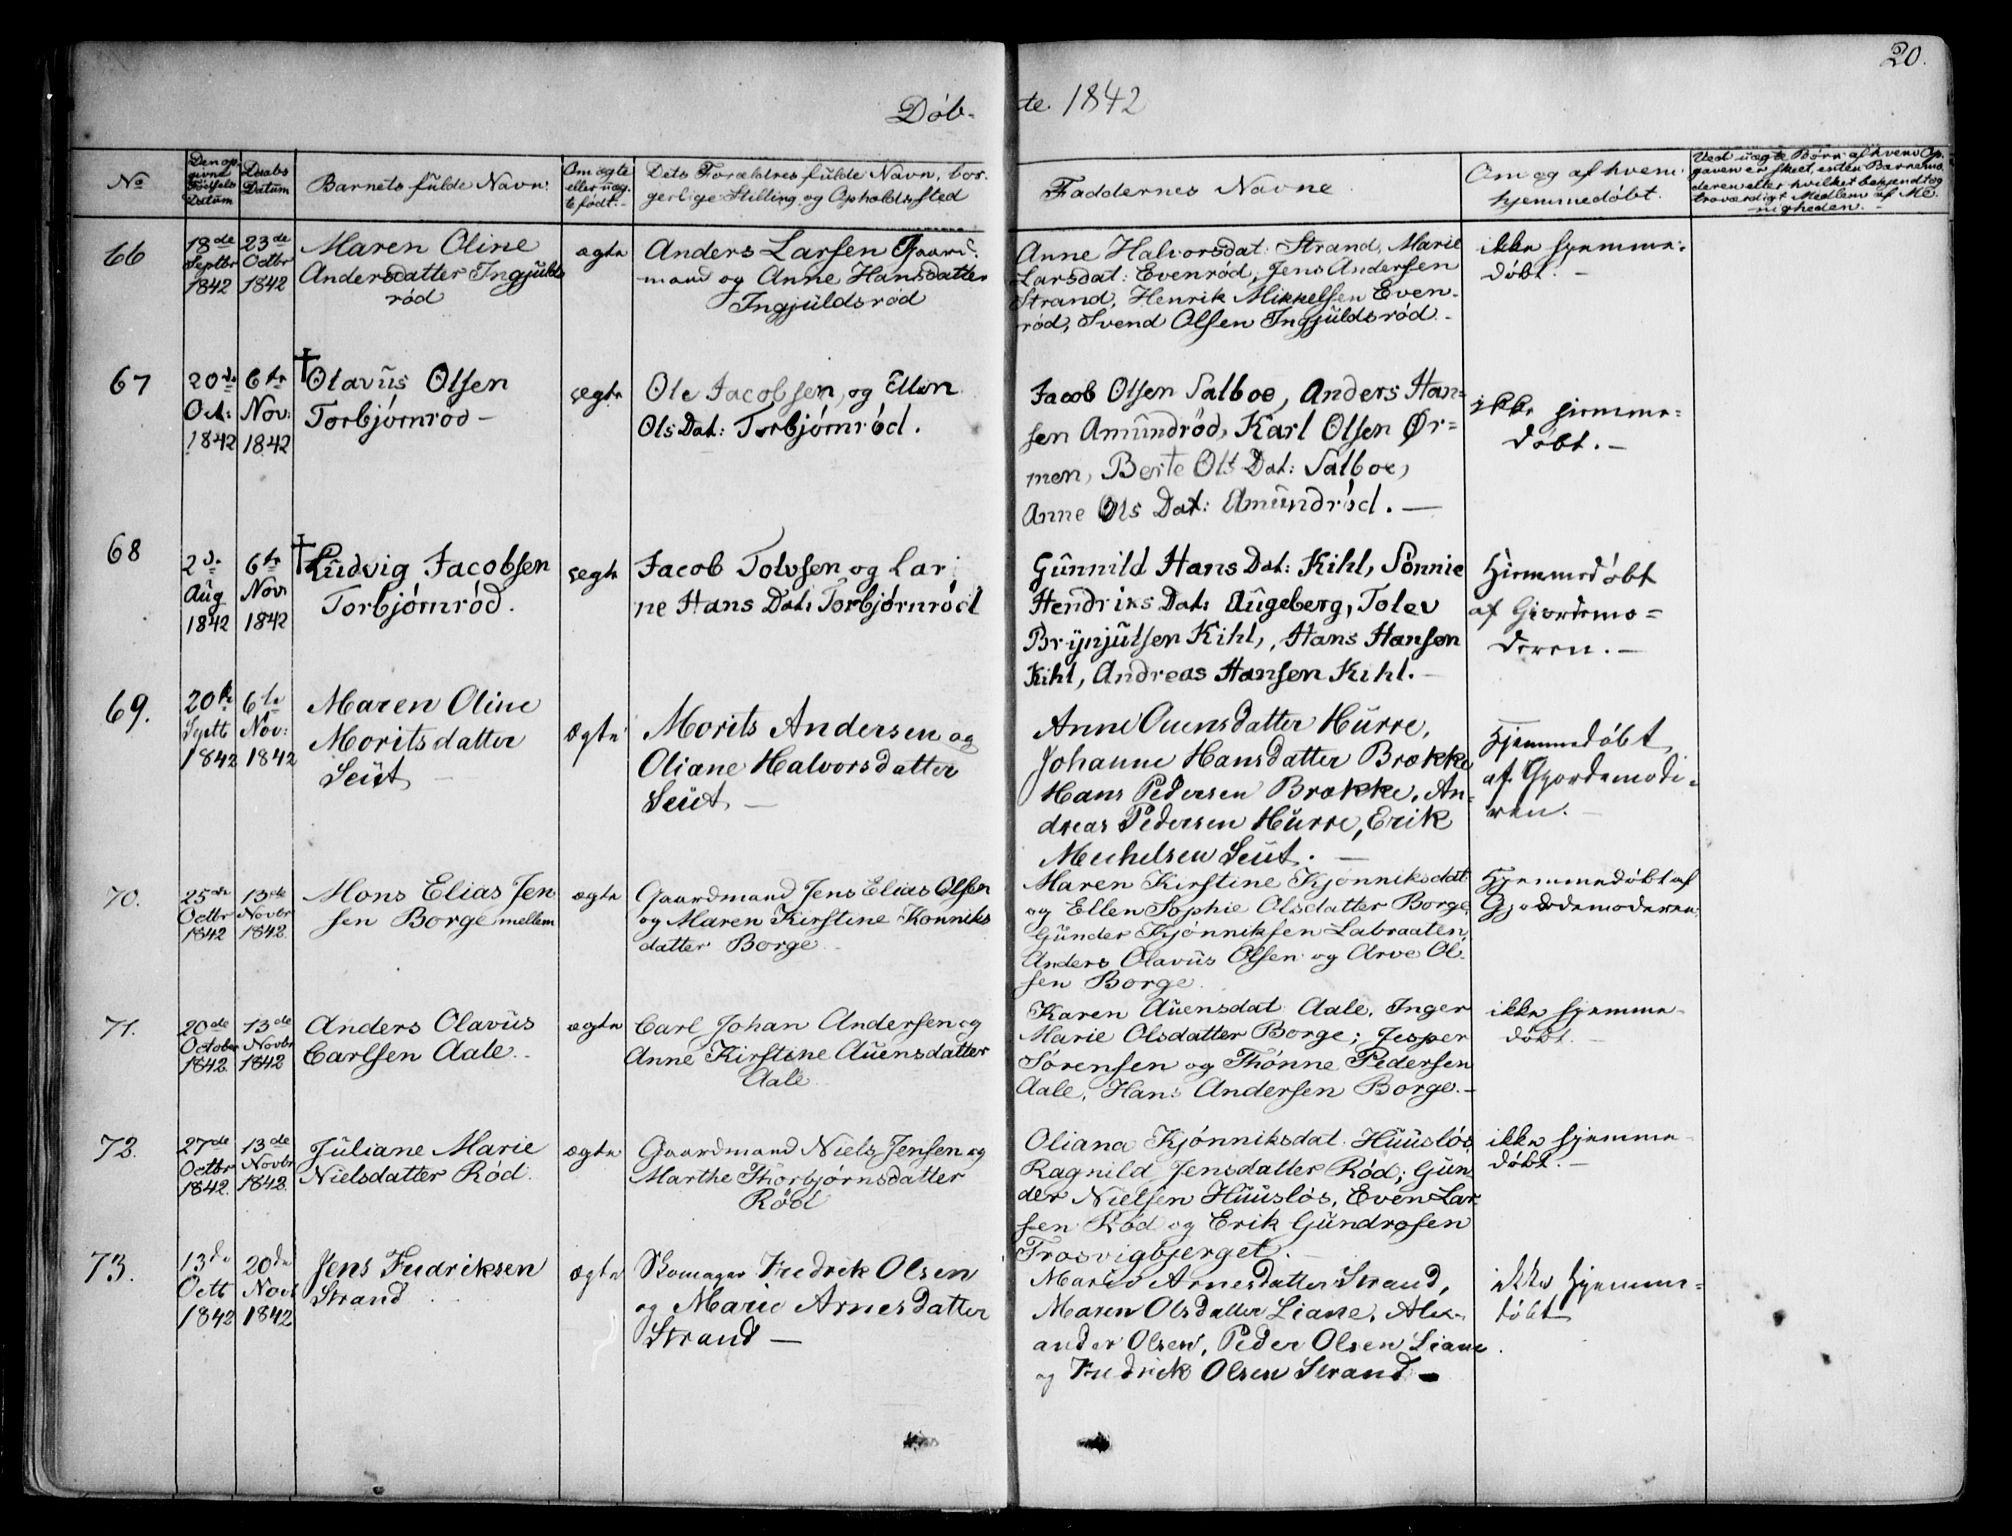 20.
Döb-
te. 1842
No
Den op-
givne
Födsels
Datum
Daabs
Datum
Barnets fulde Navn.
Om ægte
eller uæg-
te født.
Dets Forældres fulde Navn, bor-
gerlige Stilling, og Opholdssted
Faddernes Navne
Om og af hvem
hjemmedöbt.
Ved uægte Børn af hvem Op-
gaven er skeet, enten Barnemo-
deren eller hvilket bekjendt og
troværdigt Medlem af Me-
nigheden.
66
18de
Septbr
1842
23de
Octbr
1842
Maren Oline
Andersdatter Ingjulds
röd
ægte
Anders Larsen Gaard-
mand og Anne Hansdatter
Ingjuldsröd
Anne Halvorsdat: Strand, Marie
Larsdat: Evenröd, Jens Andersen
Strand, Henrik Mikkelsen Even-
röd, Svend Olsen Ingjuldsröd.
ikke hjemme-
döbt.
67
20de
Oct:
1842
6te
Nov:
1842
† Olavus Olsen
Torbjörnröd
ægte
Ole Jacobsen, og Ellen
Ols Dat: Torbjörnröd.
Jacob Olsen Salboe, Anders Han-
sen Amundröd, Karl Olsen Ør-
men, Berte Ols Dat: Salboe,
Anne Ols Dat: Amundröd.
ikke hjemme-
döbt.
68
2d.
Aug
1842
6te
Nov:
1842
† Ludvig Jacobsen
Torbjörnröd.
ægte
Jacob Tolvsen og Lar
ne Hans Dat: Torbjörnröd
Gunnild Hans Dat: Kihl, Sönnie
Hendriks Dat: Augeberg, Tolev
Brynjulsen Kihl, Hans Hansen
Kihl, Andreas Hansen Kihl.
Hjemmedöbt
af Giordemo-
deren.
69.
20de
Septb
1842
6te
Nov:
1842
Maren Oline
Moritsdatter
Seut
Ægte
Morits Andersen og
Oliane Halvorsdatter
Seut
Anne Auensdatter Hurre,
Johanne Hansdatter Brække
Hans Pedersen Brække, An-
dreas Pedersen Hurre, Erik
Mechelsen Seut.
Hjemmedöbt
af Gjordemode-
ren.
70.
25de
Octbr
1842
13de
Novbr
1842.
Mons Elias Jen
sen Borge mellem
ægte
Gaardmand Jens Elias Olsen
og Maren Kirstine Könniks
datter Borge
Maren Kirstine Kjönniksdat
og Ellen Sophie Olsdatter Borge,
Gunder Kjönniksen Labraaten,
Anders Olavus Olsen og Arve Ol
sen Borge.
Hjemmedöbt af
Gjordemoderen.
71.
20de
October
1842.
13de
Novbr
1842
Anders Olavus
Carlsen Aale.
ægte
Carl Johan Andersen og
Anne Kirstine Auensdatter
Aale
Karen Auensdat Aale, Inger
Marie Olsdatter Borge; Jesper
Sörensen og Thönne Pedersen
Aale, Hans Andersen Borge.
ikke hjemme-
döbt.
72.
27de
Octbr
1842.
13de
Novbr
1842.
Juliane Marie
Nielsdatter Röd.
ægte
Gaardmand Niels Jensen og
Marthe Thorbjörnsdatter
Röd
Oliana Kjönniksdat. Huuslös,
Ragnild Jensdatter Röd; Gun-
der Nielsen Huuslös, Even Lar
sen Röd og Erik Gundrosen
Trosvigbjerget.
ikke hjemme-
döbt.
73.
13de
Octb
1842
20de
Nov:
1842
Jens Fredriksen
Strand
ægte
Skomager Fredrik Olsen
og Marie Arnesdatter
Strand
Marie Arnesdatter Strand,
Maren Olsdatter Liane, Alex-
ander Olsen, Peder Olsen Liane
og Fredrik Olsen Strand
ikke hjemme-
döbt